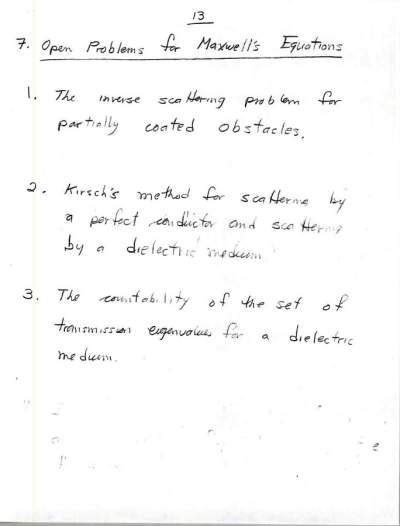 13
7. Open Problems for Maxwell's Equations
1. The inverse scattering problem for
partially coated obstacles.
2. Kirsch's method for scattering by
a perfect conductor and scattering
by a dielectric medium.
3. The countability of the set of
transmission eigenvalues for a dielectric
medium.